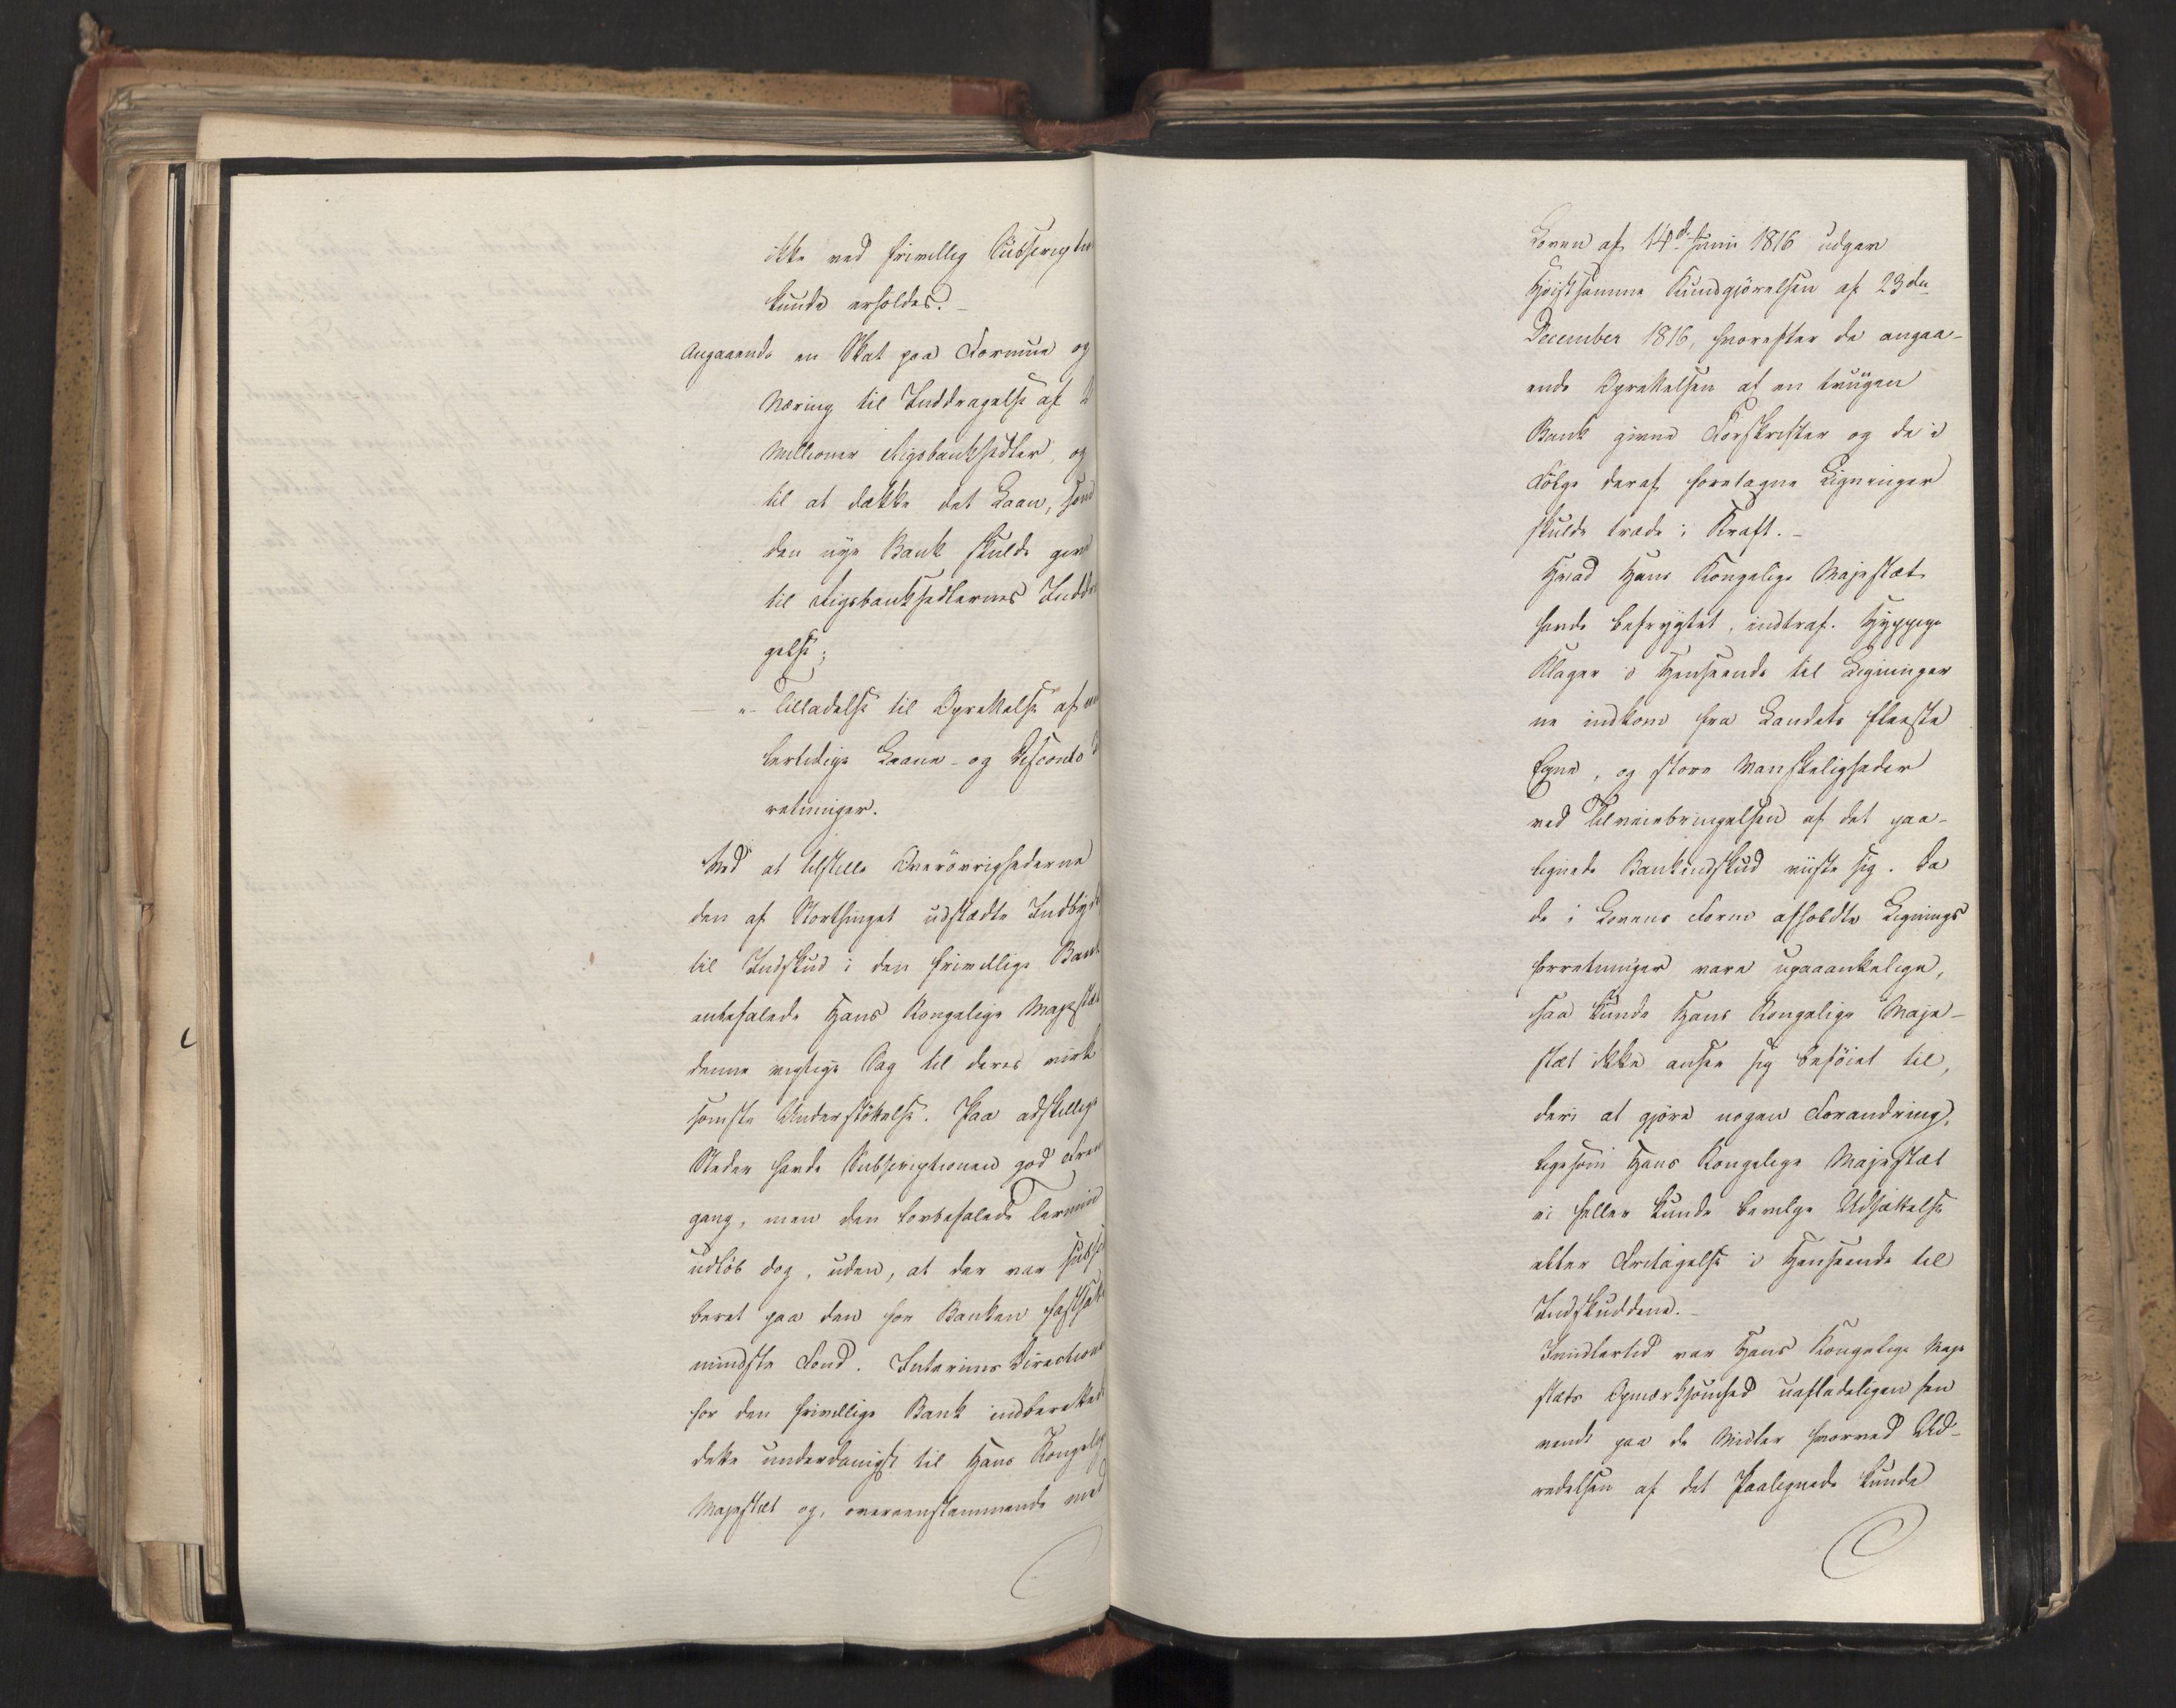 ikke ved frivillig Subscription
kunde erholdes. -
Angaaende en Skat paa Formue og
Næring til Inddragelse af 2
Millioner Rigsbanksedler, og
til at dække det Laan, som
den nye Bank skulde give
til Rigsbanksedlernes Inddra
gelse;
" Tilladelse til Oprettelse af
bertidige Laane- og Disconto
retninger.
Ved at tilstille Overøvrighederne
den af Storthinget udstædte Indbydel
til Indskud i den frivillige Bank
anbefalede Hans Kongelige Majestæt
denne vigtige Sag til deres virk
somste Understøttelse. Paa adskillige
Steder havde Subscriptionen god Frem
gang, men den lovbefalede Termin
udløb dog, uden, at der var subscri
beret paa den for Banken fastsatte
mindste Fond. Interims Directionen
for den frivillige Bank indberettede
dette underdanigst til Hans Kongelige
Majestæt og, overeenstemmende med
Loven af 14d Juni 1816 udgav
Høistsamme Kundgjørelsen af 23de
December 1816, hvorefter de angaa-
ende Oprettelsen af en tvungen
Bank givne Forskrifter og de i
Følge deraf foretagne Ligninger
skulde træde i Kraft. -
Hvad Hans Kongelige Majestæt
havde befrygtet, indtraf. Hyppige
Klager i Henseende til Ligninger
ne indkom fra Landets fleeste
Egne, og store Vanskeligheder
ved Tilveiebringelsen af det paa-
lignede Bankindskud viiste sig. Da
de i Lovens Form afholdte Lignings
forretninger vare upaaankelige,
saa kunde Hans Kongelige Maje-
stæt ikke ansee sig beføiet til,
deri at gjøre nogen Forandring,
ligesom Hans Kongelige Majestæt
ei heller kunde bevilge Udsættelse
eller Fritagelse i Henseende til
Indskuddene. -
Imidlertid var Hans Kongelige Maje
stæts Opmærksomhed uafladeligen hen
vendt paa de Midler hvorved Ud-
redelsen af det Paalignede kunde